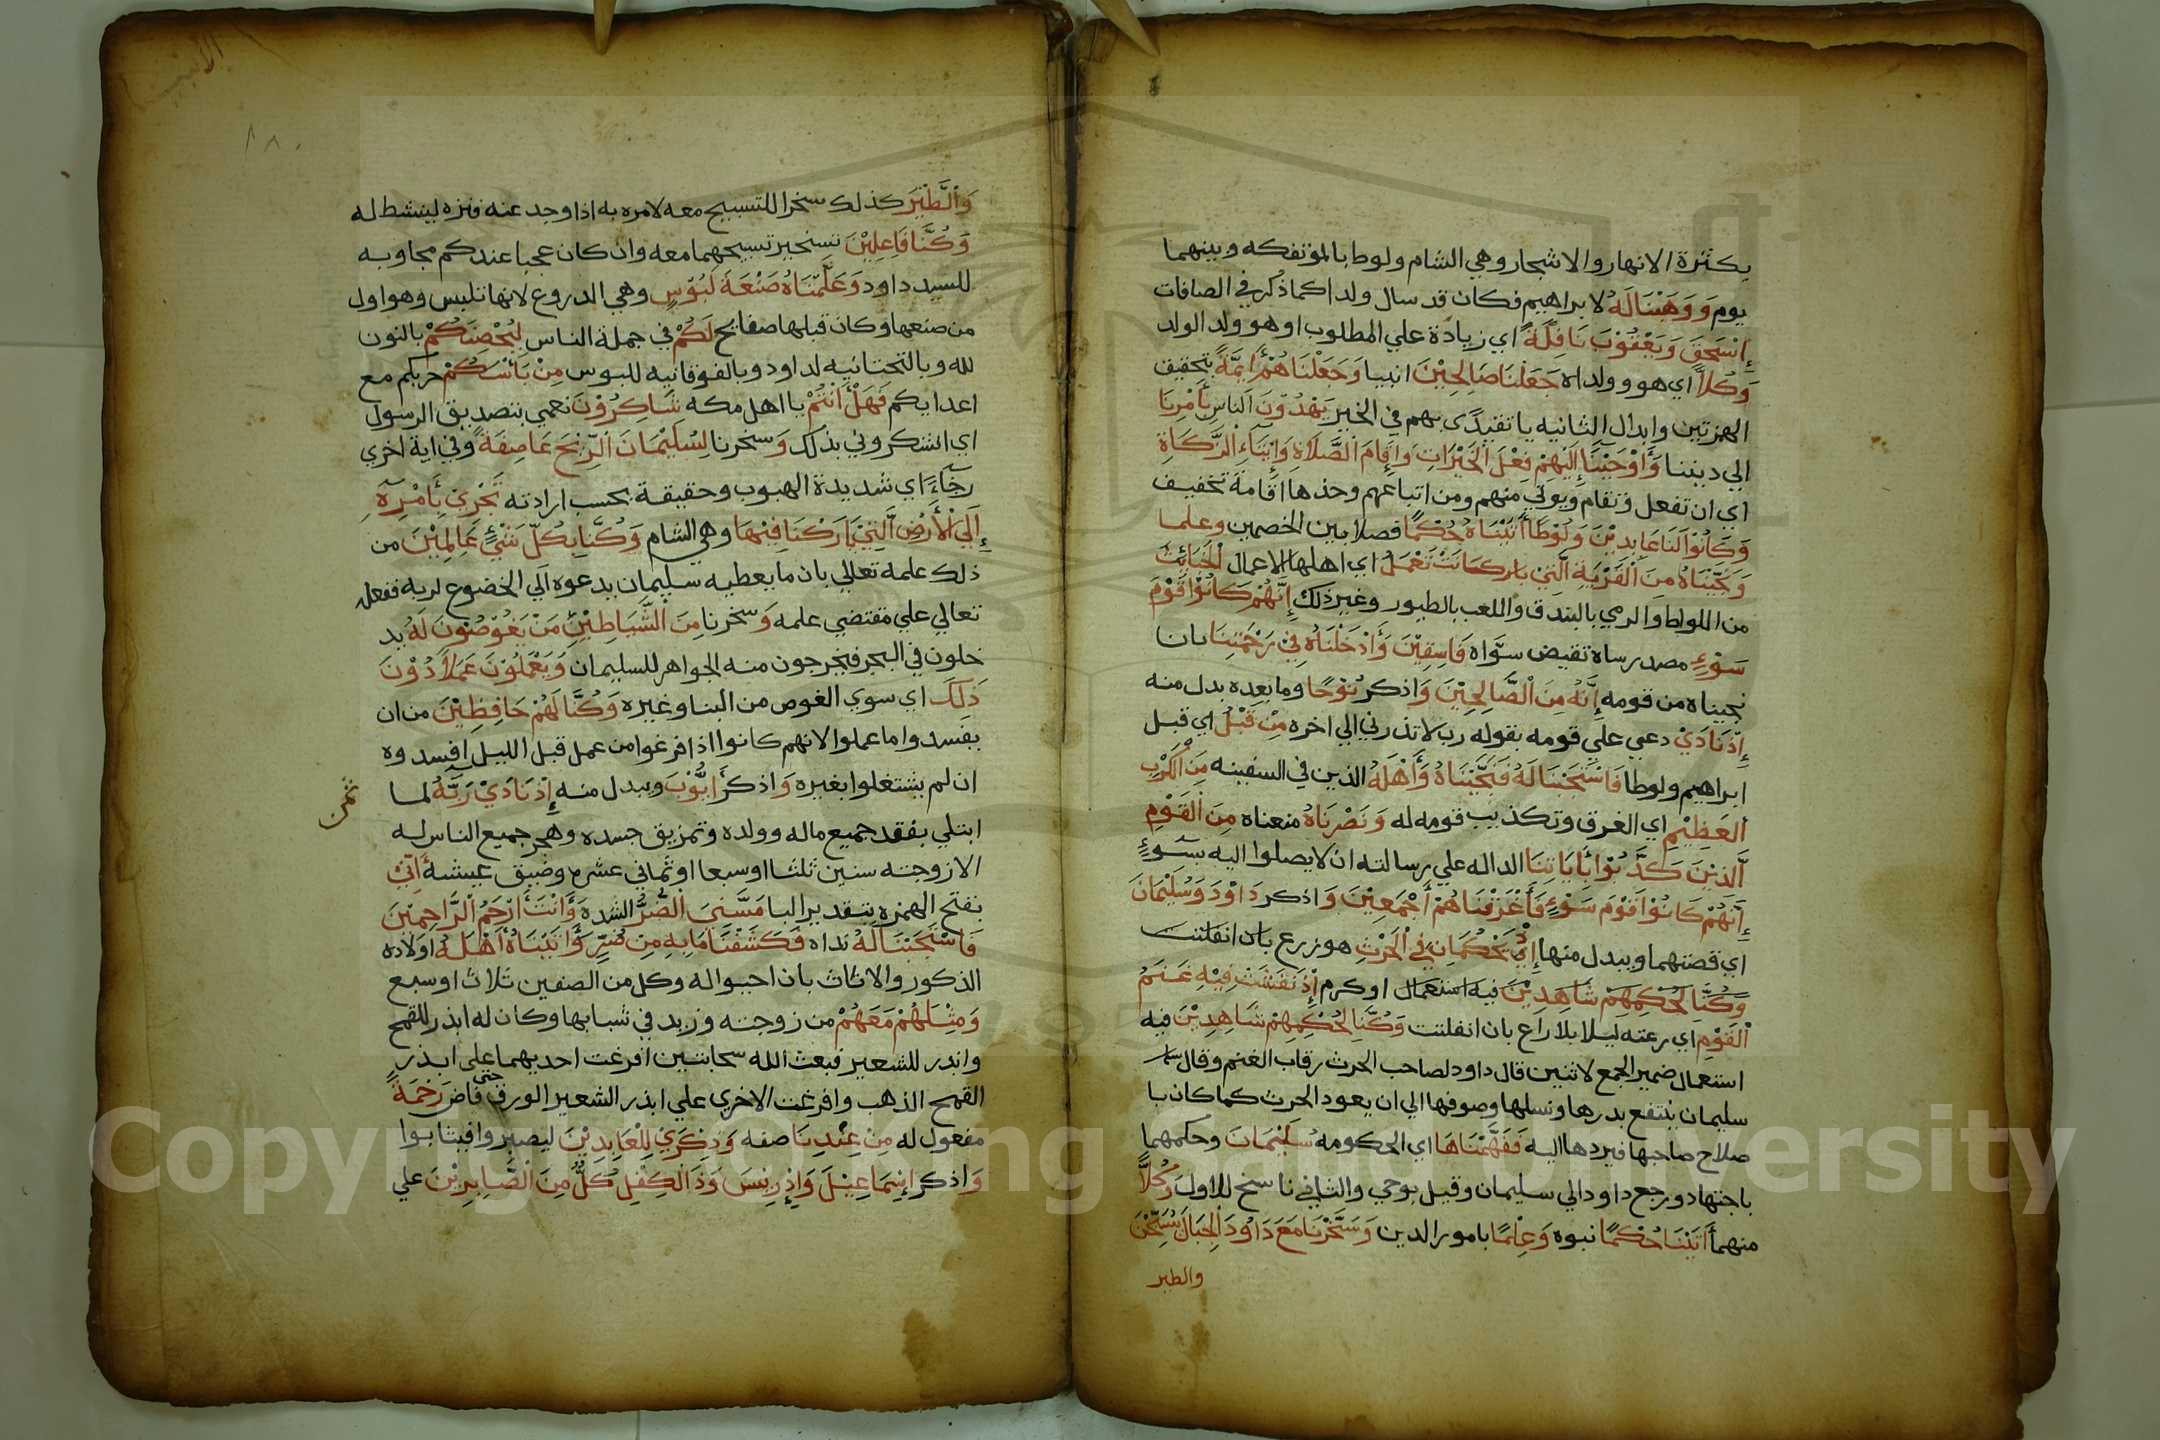 بكثرة الانهار والاشجار وهي الشام ولوط بالمؤتفكه وبينهما
يوم وَوَهَبْنَا لَهُ لابراهيم فكان قد سال ولدا كما ذكر في الصافات
إِسْحَقَ وَيَعْقُوْبَ نَافِلَةً اي زيادة علي المطلوب او هو ولد الولد
وَكُلاًّ اي هو وولداه جَعَلْنَا صَالِحِيْنَ انبيا وَجَعَلْنَاهُمْ أَيِمَّةً بتحقيق
الهمزتين وابدال الثانيه يا تقيدي بهم في الخير يَهْدُوْنَ الناس بِأَمْرِنَا
الي ديننا وَأَوْحَيْنَا إِلَيْهِمْ فِعْلَ الْخَيْرَاتِ وَإِقَامَ الصَّلَاةِ وَإِيْتَاءَ الزَّكَاةِ
اي ان تفعل وتقام ويوتي منهم ومن اتباعهم وحذ ها اقامة تخفيف
وَكَانُوْا لَنَا عَابِدِيْنَ وَلُوْطًا أَتَيْنَاهُ حُكْمًا فصلا بين الخصمين وعلما
وَنَجَّيْنَاهُ مِنَ الْقَرْيَةِ الَّتِيْ كَانَتْ تَعْمَلُ اي اهلها الاعمال الْخَبَائِثَ
من اللواط والرمي بالبندق واللعب بالطيور وغير ذلك إِنَّهُمْ كَانُوْا قَوْمَ
سَوْءٍ مصدر ساه نقيض سرّاه فَاسِقِيْنَ وَأَدْخَلْنَاهُ فِيْ رَحْمَتِنَا بان
نجيناه من قومه إِنَّهُ مِنَ الصَّالِحِيْنَ وَاذكر نُوْحًا وما بعده بدل منه
إِذْ نَادَيْ دعي علي قومه بقوله رب لا تذرني الي اخره مِنْ قَبْلُ اي قبل
ابراهيم ولوط فَاسْتَجَبْنَا لَهُ فَنَجَّيْنَاهُ وَأَهْلَهُ الذين في السفينه مِنَ الْكَرْبِ
الْعَظِيْمِ اي الغرق وتكذيب قومه له وَنَصَرْنَاهُ منعناه مِنَ الْقَوْمِ
الَّذِيْنَ كَذَّبُوْا بِأَيَاتِنَا الداله علي رسالته ان لا يصلوا اليه بسوءٍ
إِنَّهُمْ كَانُوْا قَوْمَ سَوْءٍ فَأَغْرَقْنَاهُمْ أَجْمَعِيْنَ وَاذكر دَاوُدَ وَسُلَيْمَانَ
اي قصتهما ويبدل منها إِذْ يَحْكُمَانِ فِي الْحَرْثِ هو زرع بان انفلتت
وَكُنَّا لِحُكْمِهِمْ شَاهِدِيْنَ فيه استعمال او كرم إِذْ نَفَشَتْ فِيْهِ غَنَمُ
الْقَوْمِ اي رعته ليلا بلا راع بان انفلتت وَكُنَّا لِحُكْمِهِمْ شَاهِدِيْنَ فيه
استعمال ضمير الجمع لاثنين قال داود لصاحب الحرث رقاب الغنم وقال
سليمان ينتفع بدرها ونسلها وصوفها الي ان يعود الحرث كما كان با
صلاح صاحبها فيردها اليه فَفَهَّمْنَاهَا اي الحكومه سُلَيْمَانَ وحكمهما
باجتهاد ورجع داود الي سليمان وقيل بوحي والثاني ناسخ للاول وَكُلًّا
منهما أَتَيْنَا حُكْمًا نبوه وَعِلْمًا بامور الدين وَسَخَّرْنَا مَعَ دَاوُدَ الْجِبَالَ يُسَبِّحْنَ
والطير
الانبيا
١٨٠
وَالطَّيْرَ كذلك سخرا للتسبيح معه لامره به اذا وجد عنه فتره لينشط له
وَكُنَّا فَاعِلِيْنَ تسخير تسبيحهما معه وان كان عجبا عندكم مجاوبه
للسيد داود وَعَلَّمْنَاهُ صَنْعَةَ لَبُوْسٍ وهي الدروع لانها تلبس وهو اول
من صنعها وكان قبلها صفايح لَكُمْ في جملة الناس لِنُحْصِنَكُمْ بالنون
لله وبالتحتانيه لداود وبالفوقانيه للبوس مِنْ بَأْسِكُمْ حربكم مع
اعدايكم فَهَلْ أَنْتُمْ يا اهل مكه شَاكِرُوْنَ نعمي بتصديق الرسول
اي اشكروني بذلك وَسخرنا لِسُلَيْمَانَ الرِّيْحَ عَاصِفَةً وفي اية اخري
رخاءً اي شديدة الهبوب وحقيقة بحسب ارادته تَجْرِيْ بِأَمْرِهِ
إِلَي الْأَرْضِ الَّتِيْ بَارَكْنَا فِيْهَا وهي الشام وَكُنَّا بِكُلِّ شَيْءٍ عَالِمِيْنَ من
ذلك علمه تعالي بان ما يعطيه سليمان يدعوه الي الخضوع لربه ففعله
تعالي علي مقتضي علمه وَسخرنا مِنَ الشَّيَاطِيْنِ مَنْ يَغُوْصُوْنَ لَهُ يد
خلون في البحر فيخرجون منه الجواهر للسليمان وَيَعْمَلُوْنَ عَمَلاً دُوْنَ
ذَلِكَ اي سوي الغوص من البنا وغيره وَكُنَّا لَهُمْ حَافِظِيْنَ من ان
يفسدوا ما عملوا لانهم كانوا اذا فرغوا من عمل قبل الليل افسدوه
ان لم يشتغلوا بغيره وَاذكر أَيُّوْبَ ويبدل منه إِذْ نَادَيْ رَبَّهُ لما
ثمن
ابتلي بفقد جميع ماله وولده وتمزيق جسده وهجر جميع الناس له
الا زوجته سنين ثلثا او سبعا او ثماني عشره وضيق عيشه أَنِّيْ
بفتح الهمزه بتقدير البا مَسَّنِيَ الضُّرُّ الشده وَأَنْتَ أَرْحَمُ الرَّاحِمِيْنَ
فَاسْتَجَبْنَا لَهُ نداه فَكَشَفْنَا مَا بِهِ مِنْ ضُرٍّ وَأَتَيْنَاهُ أَهْلَهُ اولاده
الذكور والاناث بان احيوا له وكل من الصنفين ثلاث او سبع
وَمِثْلَهُمْ مَعَهُمْ من زوجته وزيد في شبابها وكان له ابذر للقمح
واندر للشعير فبعث الله سحابتين افرغت احديهما علي ابذر
القمح الذهب وافرغت الاخري علي ابذر الشعير الورق حتي فاض رَحْمَةً
مفعول له مِنْ عِنْدِنَا صفه وَذِكْرَيْ لِلْعَابِدِيْنَ ليصبروا فيثابوا
وَاذكر إِسْمَاعِيْلَ وَإِدْرِيْسَ وَذَالْكِفْلِ كُلٌّ مِنَ الصَّابِرِيْنَ علي
Copyright © King Saud University